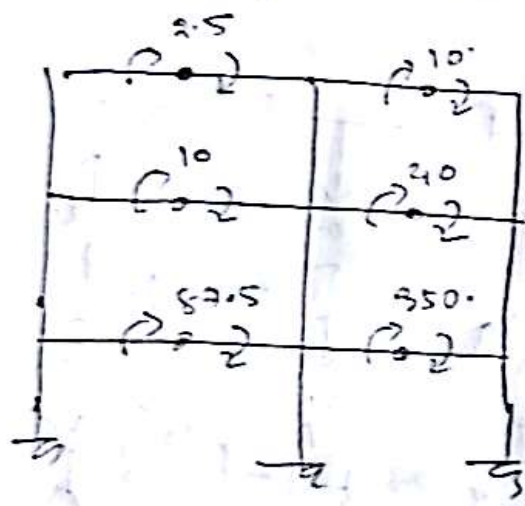 2.5 10.
10 40
87.5 350.